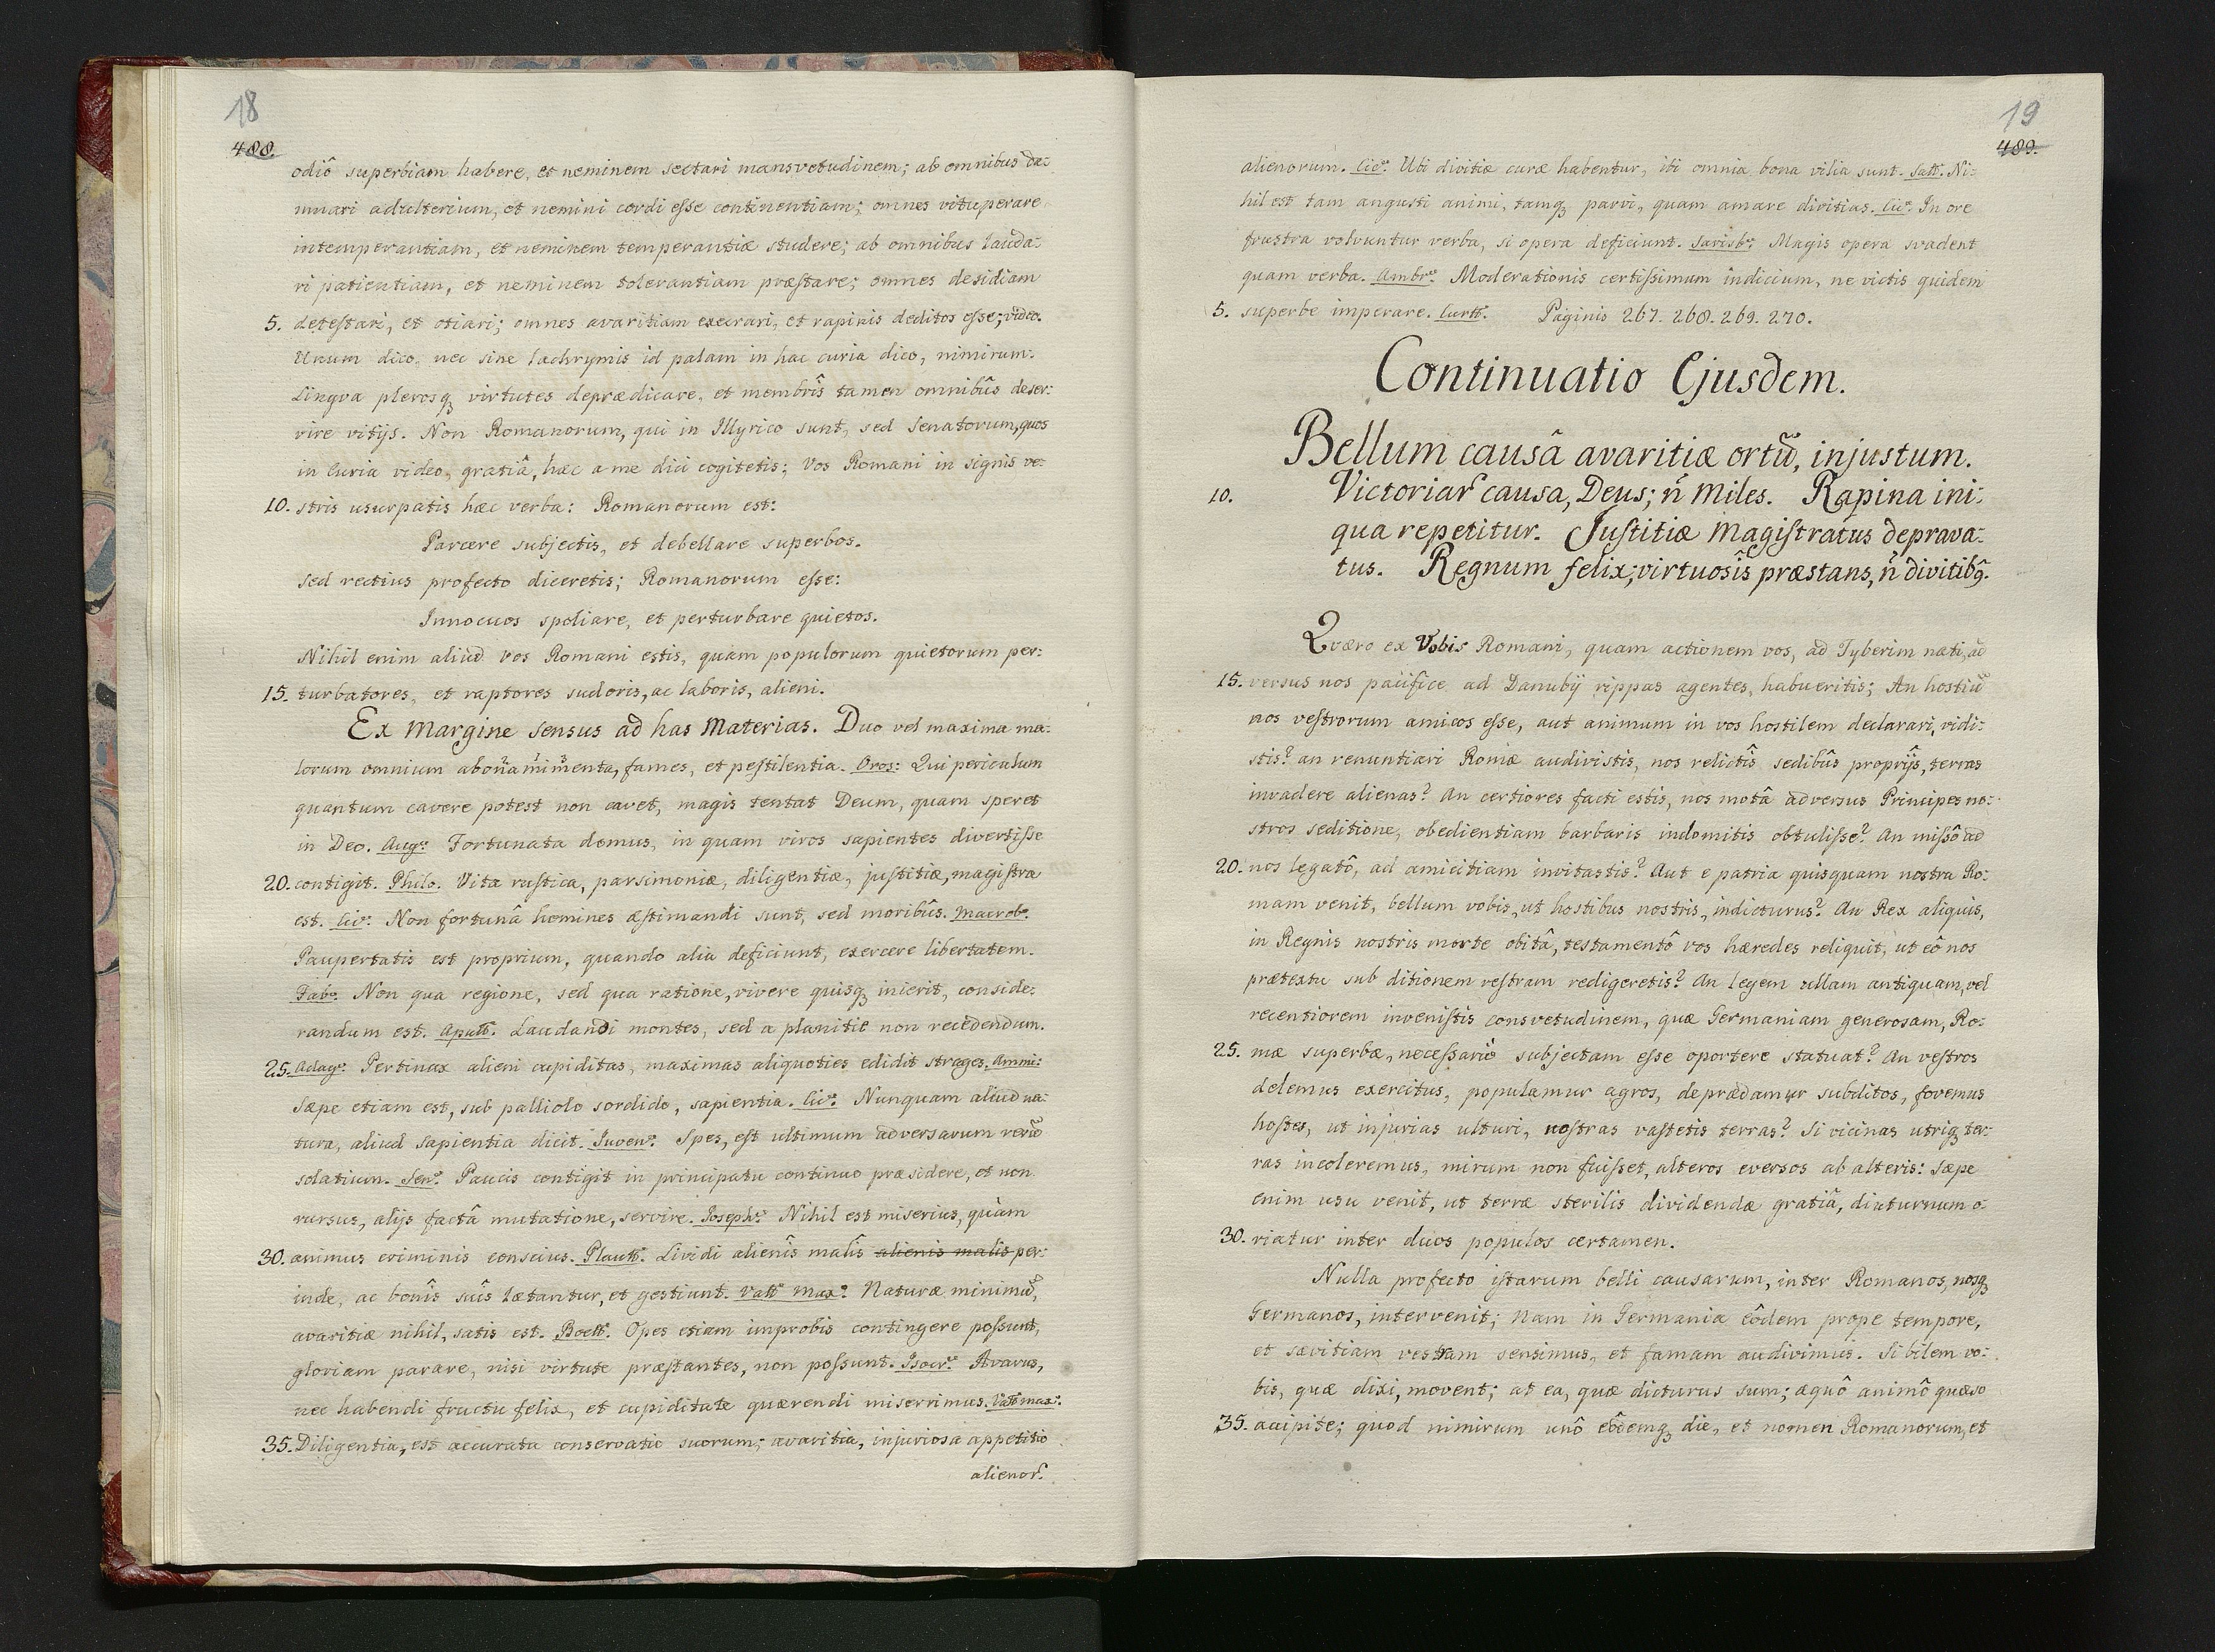 18
488.
odiô superbiam habere, et neminem sectari mansvetudinem; ab omnibus da-
mnari adulterium, et nemini cordi esse continentiam; omnes vituperare
intemperantiam, et neminem temperantiæ studere; ab omnibus lauda-
ri patientiam, et neminem tolerantiam præstare; omnes desidiam
5. detestari, et otiari; omnes avaritiam execrari, et rapinis deditos esse; video.
Unum dico, nec sine lachrymis id palam in hac curia dico, nimirum:
Lingva plerosq₃ virtutes deprædicare, et membrîs tamen omnibûs deser-
vire vitijs. Non Romanorum, qui in Illyrico sunt, sed Senatorum, quos
in Curia video, gratiâ, hæc a me dici cogitetis; Vos Romani in signis ve-
10. stris usurpatis hæc verba: Romanorum est:
Parcere subjectis, et debellare superbos.
sed rectius profecto diceretis; Romanorum esse:
Innocuos spoliare, et perturbare quietos.
Nihil enim aliud vos Romani estis, quam populorum quietorum per-
15. turbatores, et raptores sudoris, ac laboris, alieni.
Ex Margine sensus ad has Materias. Duo vel maxima ma-
lorum omnium abonaminimenta, fames, et pestilentia. Oros: Qui periculum
quantum cavere potest non cavet, magis tentat Deum, quam speret
in Deo. Aug: Fortunata domus, in quam viros sapientes divertisse
20. contigit. Philo. Vita rustica, parsimoniæ, diligentiæ, justitiæ, magistra
est. Cic: Non fortunâ homines æstimandi sunt, sed moribûs. Macrob:
Paupertatis est proprium, quando alia deficiunt, exercere libertatem.
Fab: Non qua regione, sed qua ratione, vivere quisq₃ inierit, conside-
randum est. Apull. Laudandi montes, sed a planitie non recedendum.
25. Adag: Pertinax alieni cupiditas, maximas aliquoties edidit strages. Ammi:
Sæpe etiam est, sub palliolo sordido, sapientia. Cic: Nunquam aliud na-
tura, aliud sapientia dicit. Juven: Spes, est ultimum adversarum rerũ
solatium. Sen: Paucis contigit in principatu continuo præsidere, et non
rursus, alijs factâ mutatione, servire. Joseph: Nihil est miserius, quàm
30. animus criminis conscius. Plautt. Lividi alienîs malîs alienis malis per-
inde, ac bonîs suîs lætantur, et gestiunt. Vall Max: Naturæ minimũ,
avaritiæ nihil, satis est. Boett. Opes etiam improbis contingere possunt,
gloriam parare, nisi virtute præstantes, non possunt. Isocr: Avarus,
nec habendi fructu felix, et cupiditate quærendi miserrimus. Vall max:
35. Diligentia, est accurata conservatio suorum; avaritia, injuriosa appetitio
alienor̃.
19
489.
alienorum. Cic: Ubi divitiæ caræ habentur, ibi omnia bona vilia sunt. Sall. Ni-
hil est tam angusti animi, tamq₃ parvi, quam amare divitias. Cic: In ore
frustra volvuntur verba, si opera deficiunt. Sarisb: Magis opera svadent
quam verba. Ambr: Moderationis certissimum indicium, ne victis quidem
5. superbe imperare. Curtt. Paginis 267. 268. 269. 270.
Continuatio Ejusdem.
Bellum causâ avaritiæ ortũ, injustum.
10. Victoriar̃ causa, Deus; ñ Miles. Rapina ini-
qua repetitur. Justitiæ Magistratus deprava-
tus. Regnum felix; virtuosîs præstans, ñ divitibq.
Quæro ex Vobis Romani, quam actionem vos, ad Tyberim nati, ad
15. versus nos pacifice ad Danubij rippas agentes, habueritis; An hostiũ
nos vestrorum amicos esse, aut animum in vos hostilem declarari, vidi-
stis? an renuntiari Romæ audivistis, nos relictîs sedibûs proprijs, terras
invadere alienas? An certiores facti estis, nos motâ adversus Principes no-
stros seditione, obedientiam barbaris indomitis obtulisse? An missô ad
20. nos legatô, ad amicitiam invitastis? Aut e patria quisquam nostra Ro-
mam venit, bellum vobis, ut hostibus nostris, indicturus? An Rex aliquis,
in Regnis nostris morte obitâ, testamentô vos hæredes reliquit, ut eô nos
prætextu sub ditionem vestram redigeretis? An legem ullam antiquam, vel
recentiorem invenistis consvetudinem, quæ Germaniam generosam, Ro-
25. mæ superbæ, necessariò subjectam esse oportere statuat? An vestros
delemus exercitus, populamur agros, deprædamur subditos, fovemus
hostes, ut injurias ulturi, nostras vastetis terras? Si vicinas utriq₃ ter-
ras incoleremus, mirum non fuisset, alteros eversos ab alteris: Sæpe
enim usu venit, ut terræ sterilis dividendæ gratiâ, diuturnum o-
30. riatur inter duos populos certamen.
Nulla profecto istarum belli causarum, inter Romanos, nosq₃
Germanos, intervenit; Nam in Germania eôdem prope tempore,
et sævitiam vestram sensimus, et famam audivimus. Si bilem vo-
bis, quæ dixi, movent; at ea, quæ dicturus sum; æquô animô quæso
35. accipite; quod nimirum unô eôdemq₃ die, et nomen Romanorum, et